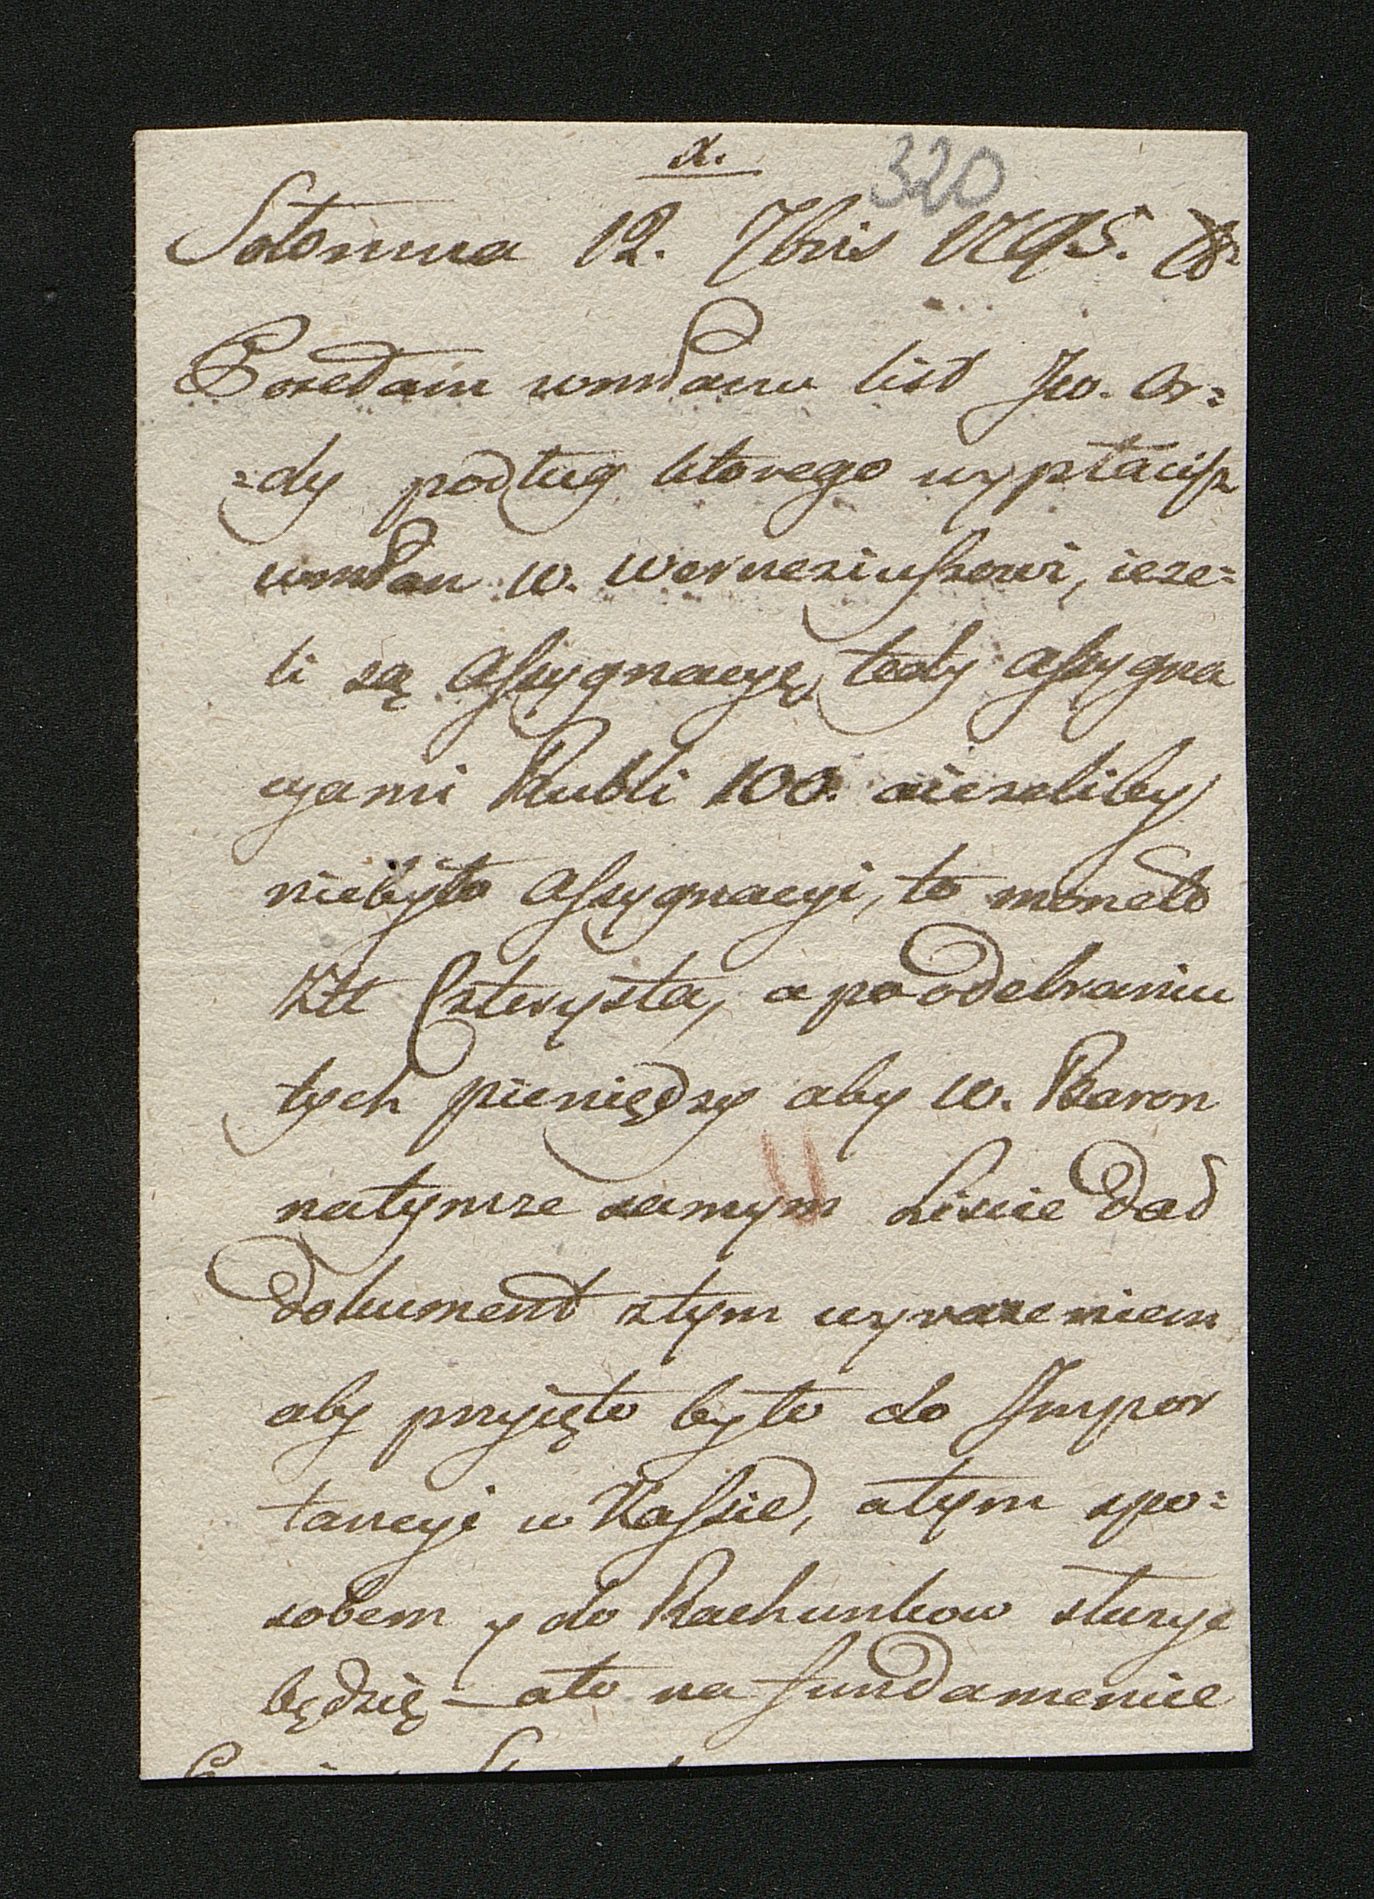 320
Sotomna 12. 7bris 1795.
Posełam wmdanu list Jw. Or=
=dy podług ktorego wypłacisz
wmdan W. Werneziuszowi, ieże=
li są assygnacyę, tedy assygna
cyami Rubli 100. aieżeliby
niebyło assygnacyi, to monetą
Złł Czterysta, a po odebraniu
tych pieniędzy aby W. Baron
natymze samym Liscie dał
Dokument ztym wyrazeniem
aby przyięto było do Impor
tancyi w Kassie, atym spo=
sobem y do Rachunkow służyć
będzię – ato na fundamencie